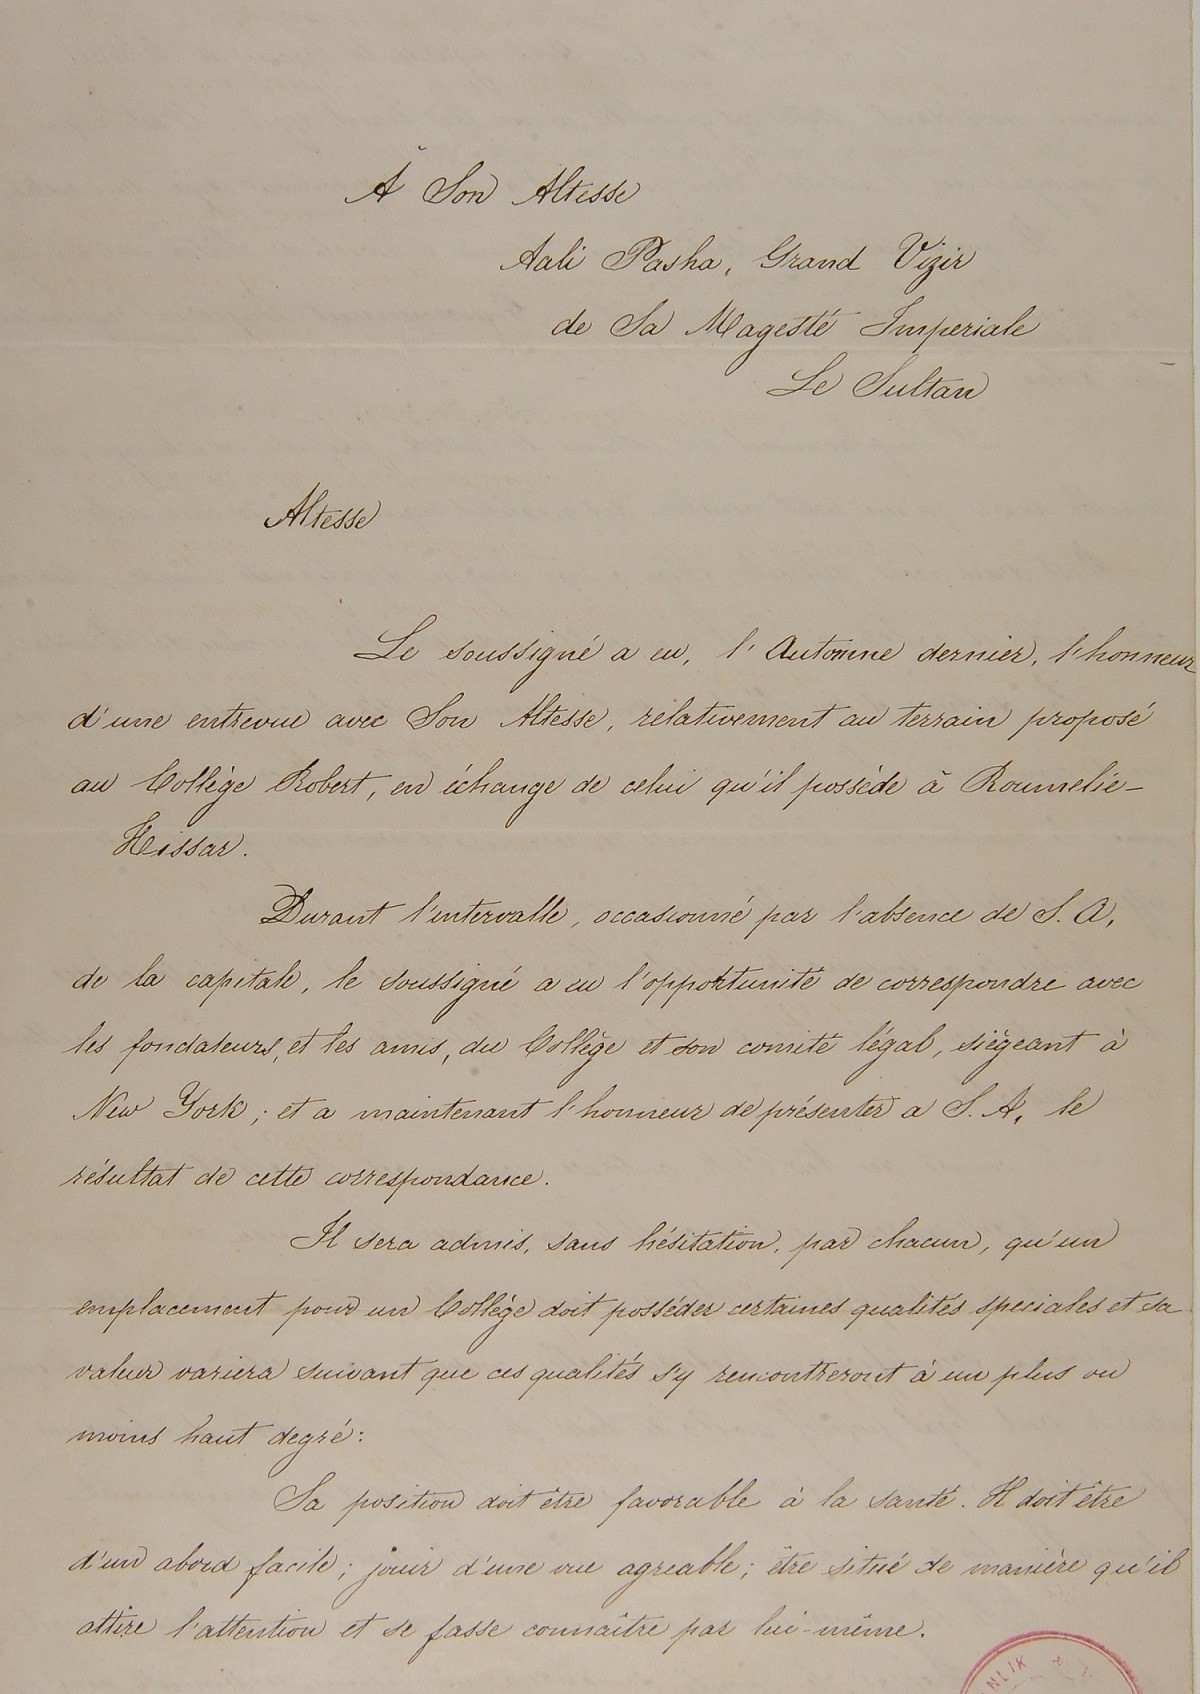 À Son Altesse
Aali Pasha, Grand Vizir
de Sa Magesté Imperiale
Le Sultan
Altesse
Le soussigné a eu, l'Automne dernier, l'honneur
d'une entrevue avec Son Altesse, relativement au terrain proposé
au Collège Robert, en échange de celui qu'il possède à Roumelie-
Hissar.
Durant l'intervalle, occasionné par l'absence de S. A,
de la capitale, le soussigné a eu l'opportunité de correspondre avec
les fondateurs, et les amis, du Collège et son comité légal, siégeant à
New York; et a maintenant l'honneur de présenter a S. A, le
résultat de cette correspondance.
Il sera admis, sans hésitation, par chacun, qu'un
emplacement pour un Collège doit posséder certaines qualités speciales et sa
valeur variera suivant que ces qualités s'y rencontreront à un plus ou
moins haut degré:
Sa position doit être favorable à la santé. Il doit être
d'un abord facile; jouir d'une vue agreable; être situé de manière qu'il
attire l'attention et se fasse connaître par lui-même.
NLIK